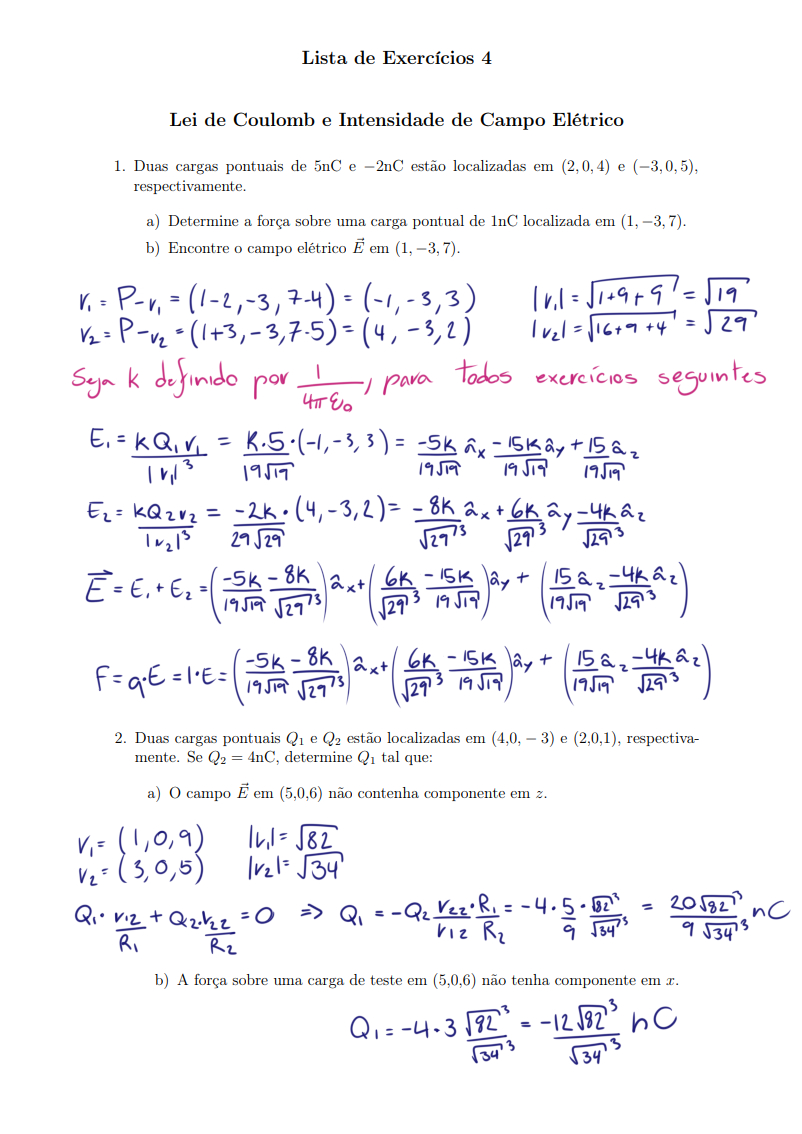 Lista de Exercícios 4
Lei de Coulomb e Intensidade de Campo Elétrico
1. Duas cargas pontuais de 5nC e −2nC estão localizadas em (2, 0, 4) e (−3, 0, 5),
respectivamente.
a) Determine a força sobre uma carga pontual de 1nC localizada em (1, −3, 7).
b) Encontre o campo elétrico \vec{E} em (1, −3, 7).
r₁ = P-r₁ = (1-2, -3, 7-4) = (-1, -3, 3) |r₁| = √(1+9+9) = √19
r₂ = P-r₂ = (1+3, -3, 7-5) = (4, -3, 2) |r₂| = √(16+9+4) = √29
Seja k definido por 1/(4πε₀), para todos exercícios seguintes
E₁ = kQ₁r₁/|r₁|³ = K·5·(-1, -3, 3)/(19√19) = -5k/(19√19) âx - 15k/(19√19) ây + 15/(19√19) âz
E₂ = kQ₂r₂/|r₂|³ = -2k·(4, -3, 2)/(29√29) = -8k/√29³ âx + 6k/√29³ ây - 4k/√29³ âz
\vec{E} = E₁ + E₂ = (-5k/(19√19) - 8k/√29³) âx + (6k/√29³ - 15k/(19√19)) ây + (15/(19√19) âz - 4k/√29³ âz)
F = q·E = 1·E = (-5k/(19√19) - 8k/√29³) âx + (6k/√29³ - 15k/(19√19)) ây + (15/(19√19) âz - 4k/√29³ âz)
2. Duas cargas pontuais Q₁ e Q₂ estão localizadas em (4,0, − 3) e (2,0,1), respectiva-
mente. Se Q₂ = 4nC, determine Q₁ tal que:
a) O campo \vec{E} em (5,0,6) não contenha componente em z.
r₁ = (1, 0, 9) |r₁| = √82
r₂ = (3, 0, 5) |r₂| = √34
Q₁·r₁z/R₁ + Q₂·r₂z/R₂ = 0 ⇒ Q₁ = -Q₂ r₂z/r₁z · R₁/R₂ = -4·5/9·√82³/√34³ = 20√82³/(9√34³) nC
b) A força sobre uma carga de teste em (5,0,6) não tenha componente em x.
Q₁ = -4·3 √82³/√34³ = -12√82³/√34³ nC